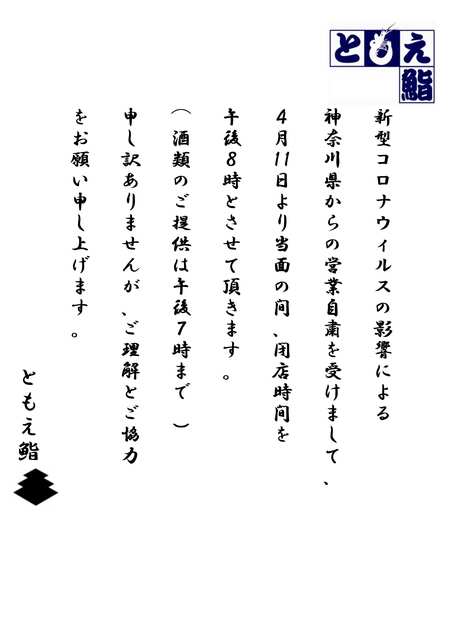 ともえ
鮨
新型コロナウィルスの影響による
神奈川県からの営業自粛を受けまして、
4月11日より当面の間、閉店時間を
午後8時とさせて頂きます。
(酒類のご提供は午後7時まで)
申し訳ありませんが、ご理解とご協力
をお願い申し上げます。
ともえ鮨